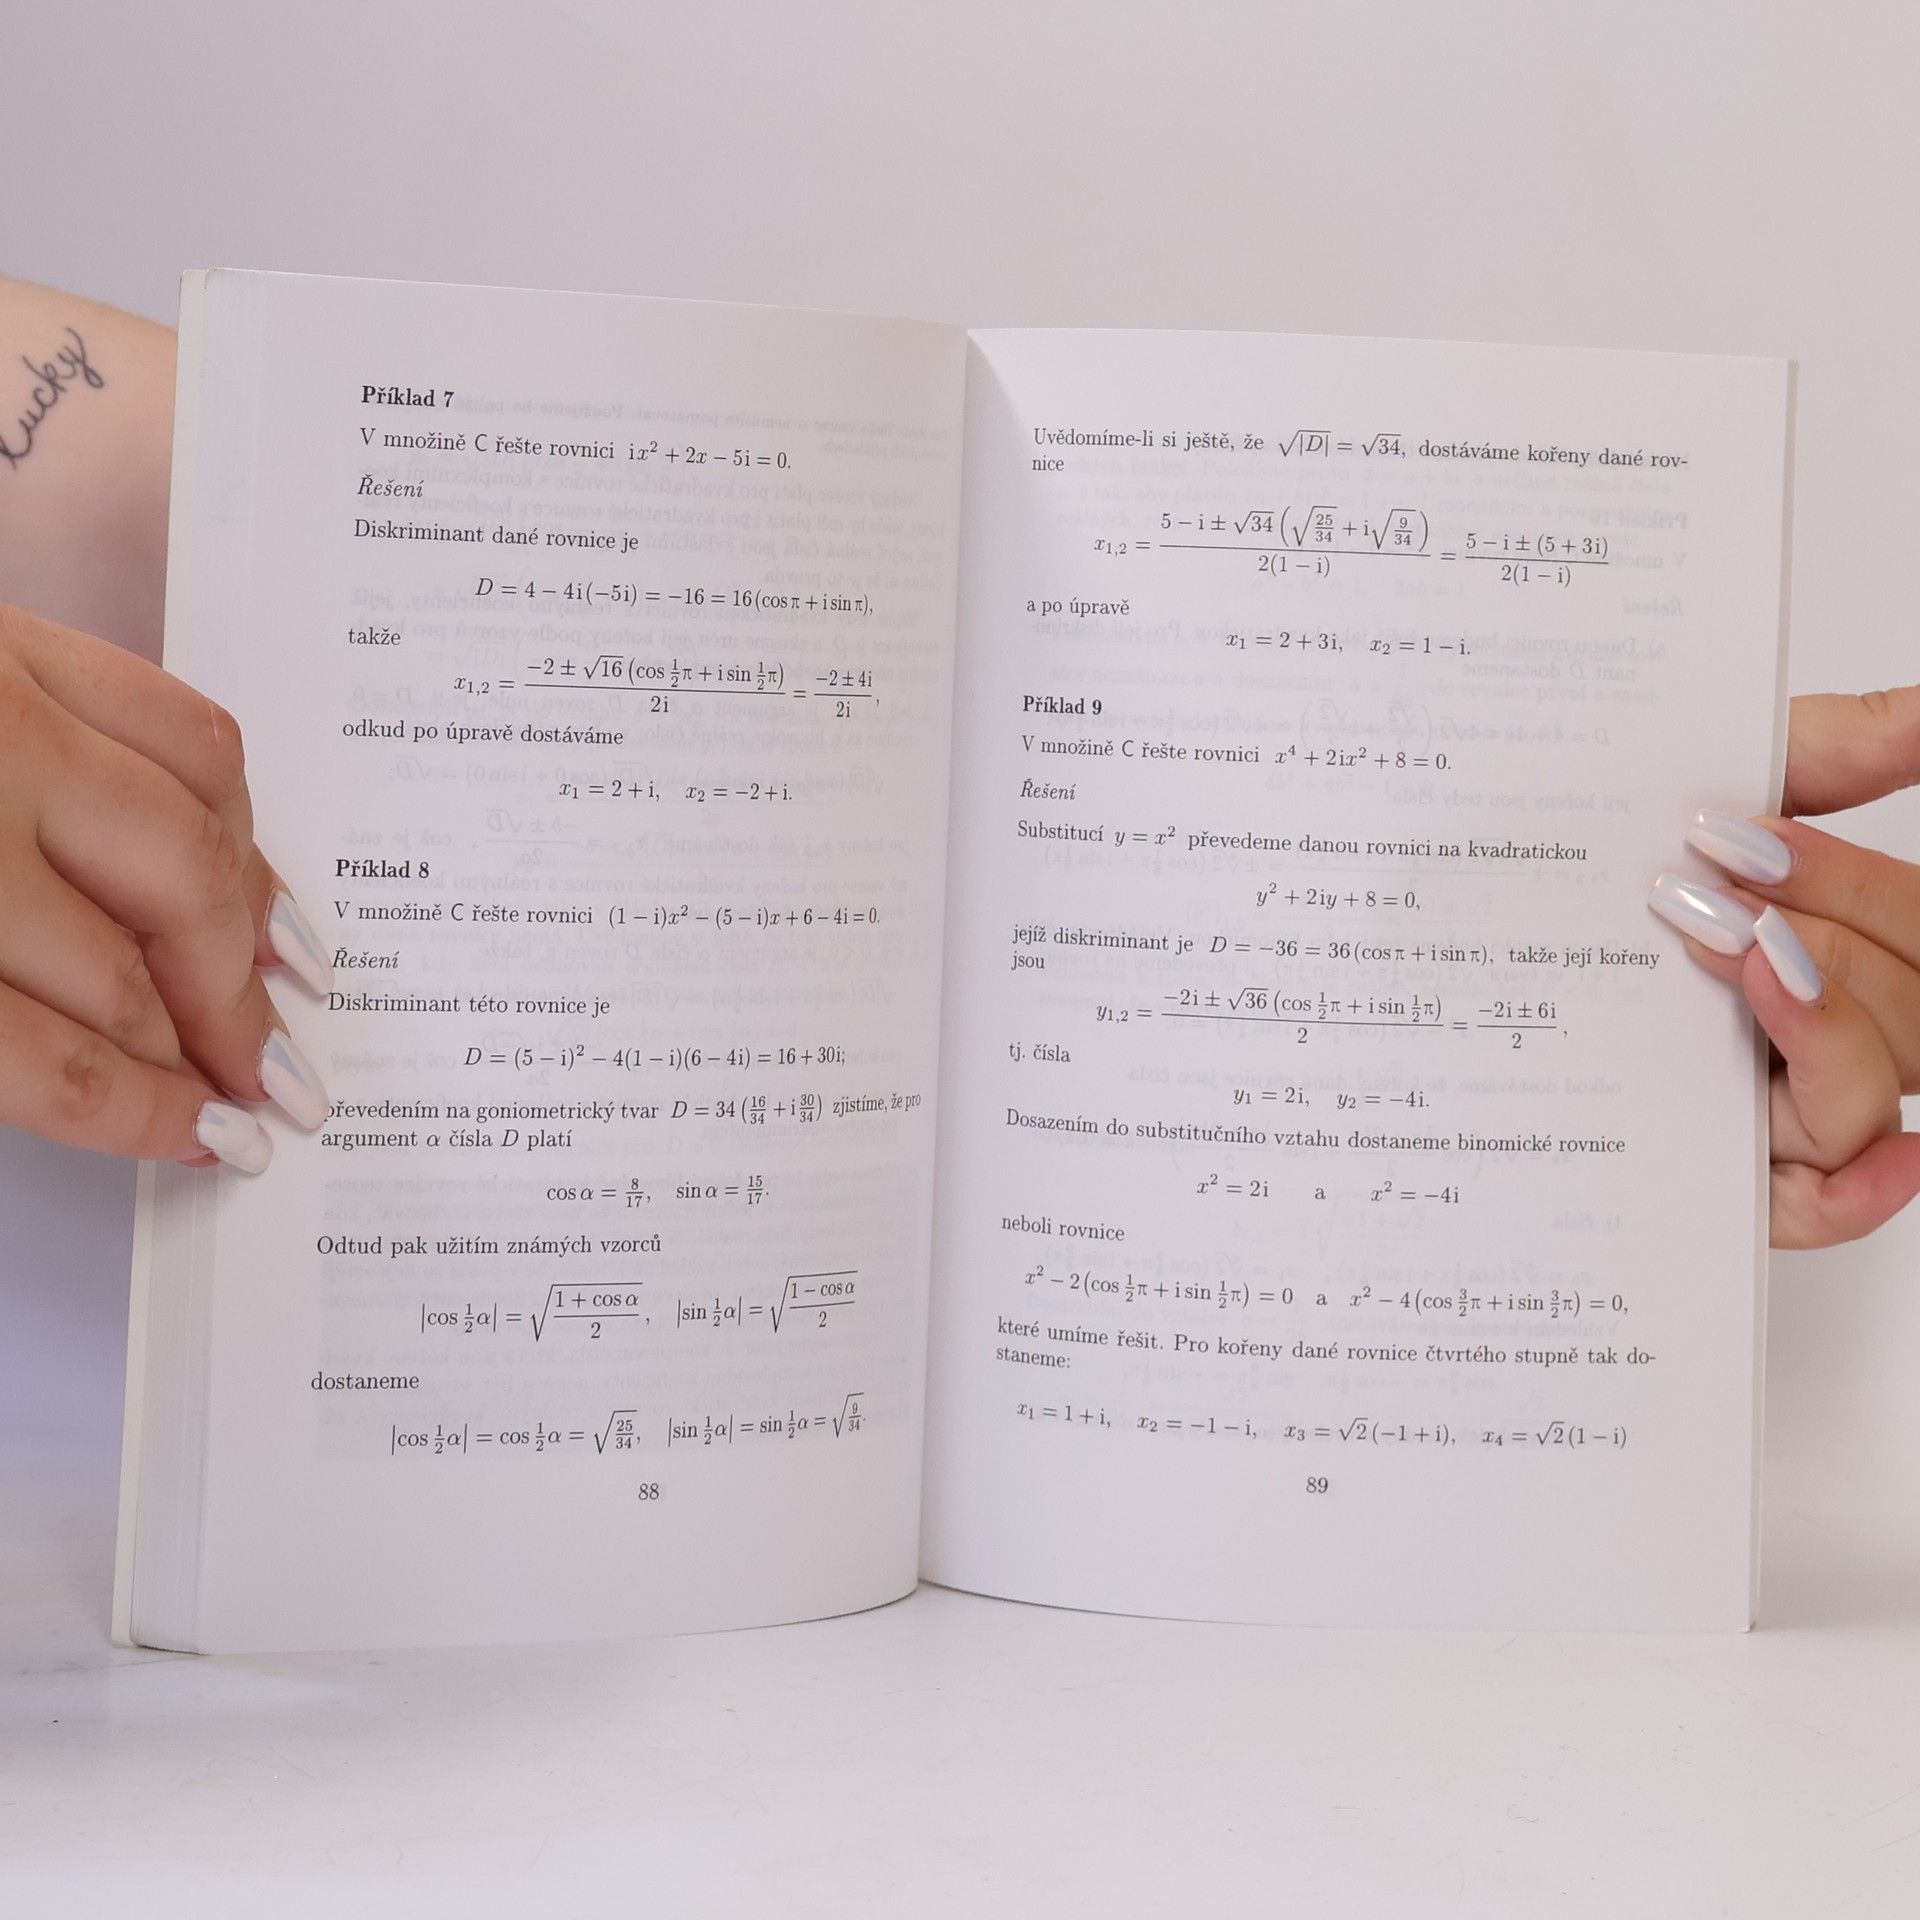 lucky
Příklad 7
V množině C řešte rovnici ix² + 2x − 5i = 0.
Řešení
Diskriminant dané rovnice je
D = 4 − 4i(−5i) = −16 = 16(cos π + i sin π),
takže
x₁,₂ = (−2 ± √16 (cos ½π + i sin ½π))/(2i) = (−2 ± 4i)/(2i),
odkud po úpravě dostáváme
x₁ = 2 + i, x₂ = −2 + i.
Příklad 8
V množině C řešte rovnici (1 − i)x² − (5 − i)x + 6 − 4i = 0.
Řešení
Diskriminant této rovnice je
D = (5 − i)² − 4(1 − i)(6 − 4i) = 16 + 30i;
převedením na goniometrický tvar D = 34 (16/34 + i 30/34) zjistíme, že pro
argument α čísla D platí
cos α = 8/17, sin α = 15/17.
Odtud pak užitím známých vzorců
|cos ½α| = √((1 + cos α)/2), |sin ½α| = √((1 − cos α)/2)
dostaneme
|cos ½α| = cos ½α = √(25/34), |sin ½α| = sin ½α = √(9/34).
88
Uvědomíme-li si ještě, že √|D| = √34, dostáváme kořeny dané rov-
nice
x₁,₂ = (5 − i ± √34 (√(25/34) + i√(9/34)))/(2(1 − i)) = (5 − i ± (5 + 3i))/(2(1 − i))
a po úpravě
x₁ = 2 + 3i, x₂ = 1 − i.
Příklad 9
V množině C řešte rovnici x⁴ + 2ix² + 8 = 0.
Řešení
Substitucí y = x² převedeme danou rovnici na kvadratickou
y² + 2iy + 8 = 0,
jejíž diskriminant je D = −36 = 36 (cos π + i sin π), takže její kořeny
jsou
y₁,₂ = (−2i ± √36 (cos ½π + i sin ½π))/2 = (−2i ± 6i)/2,
tj. čísla
y₁ = 2i, y₂ = −4i.
Dosazením do substitučního vztahu dostaneme binomické rovnice
x² = 2i a x² = −4i
neboli rovnice
x² − 2 (cos ½π + i sin ½π) = 0 a x² − 4 (cos 3/2π + i sin 3/2π) = 0,
které umíme řešit. Pro kořeny dané rovnice čtvrtého stupně tak do-
staneme:
x₁ = 1 + i, x₂ = −1 − i, x₃ = √2 (−1 + i), x₄ = √2 (1 − i)
89